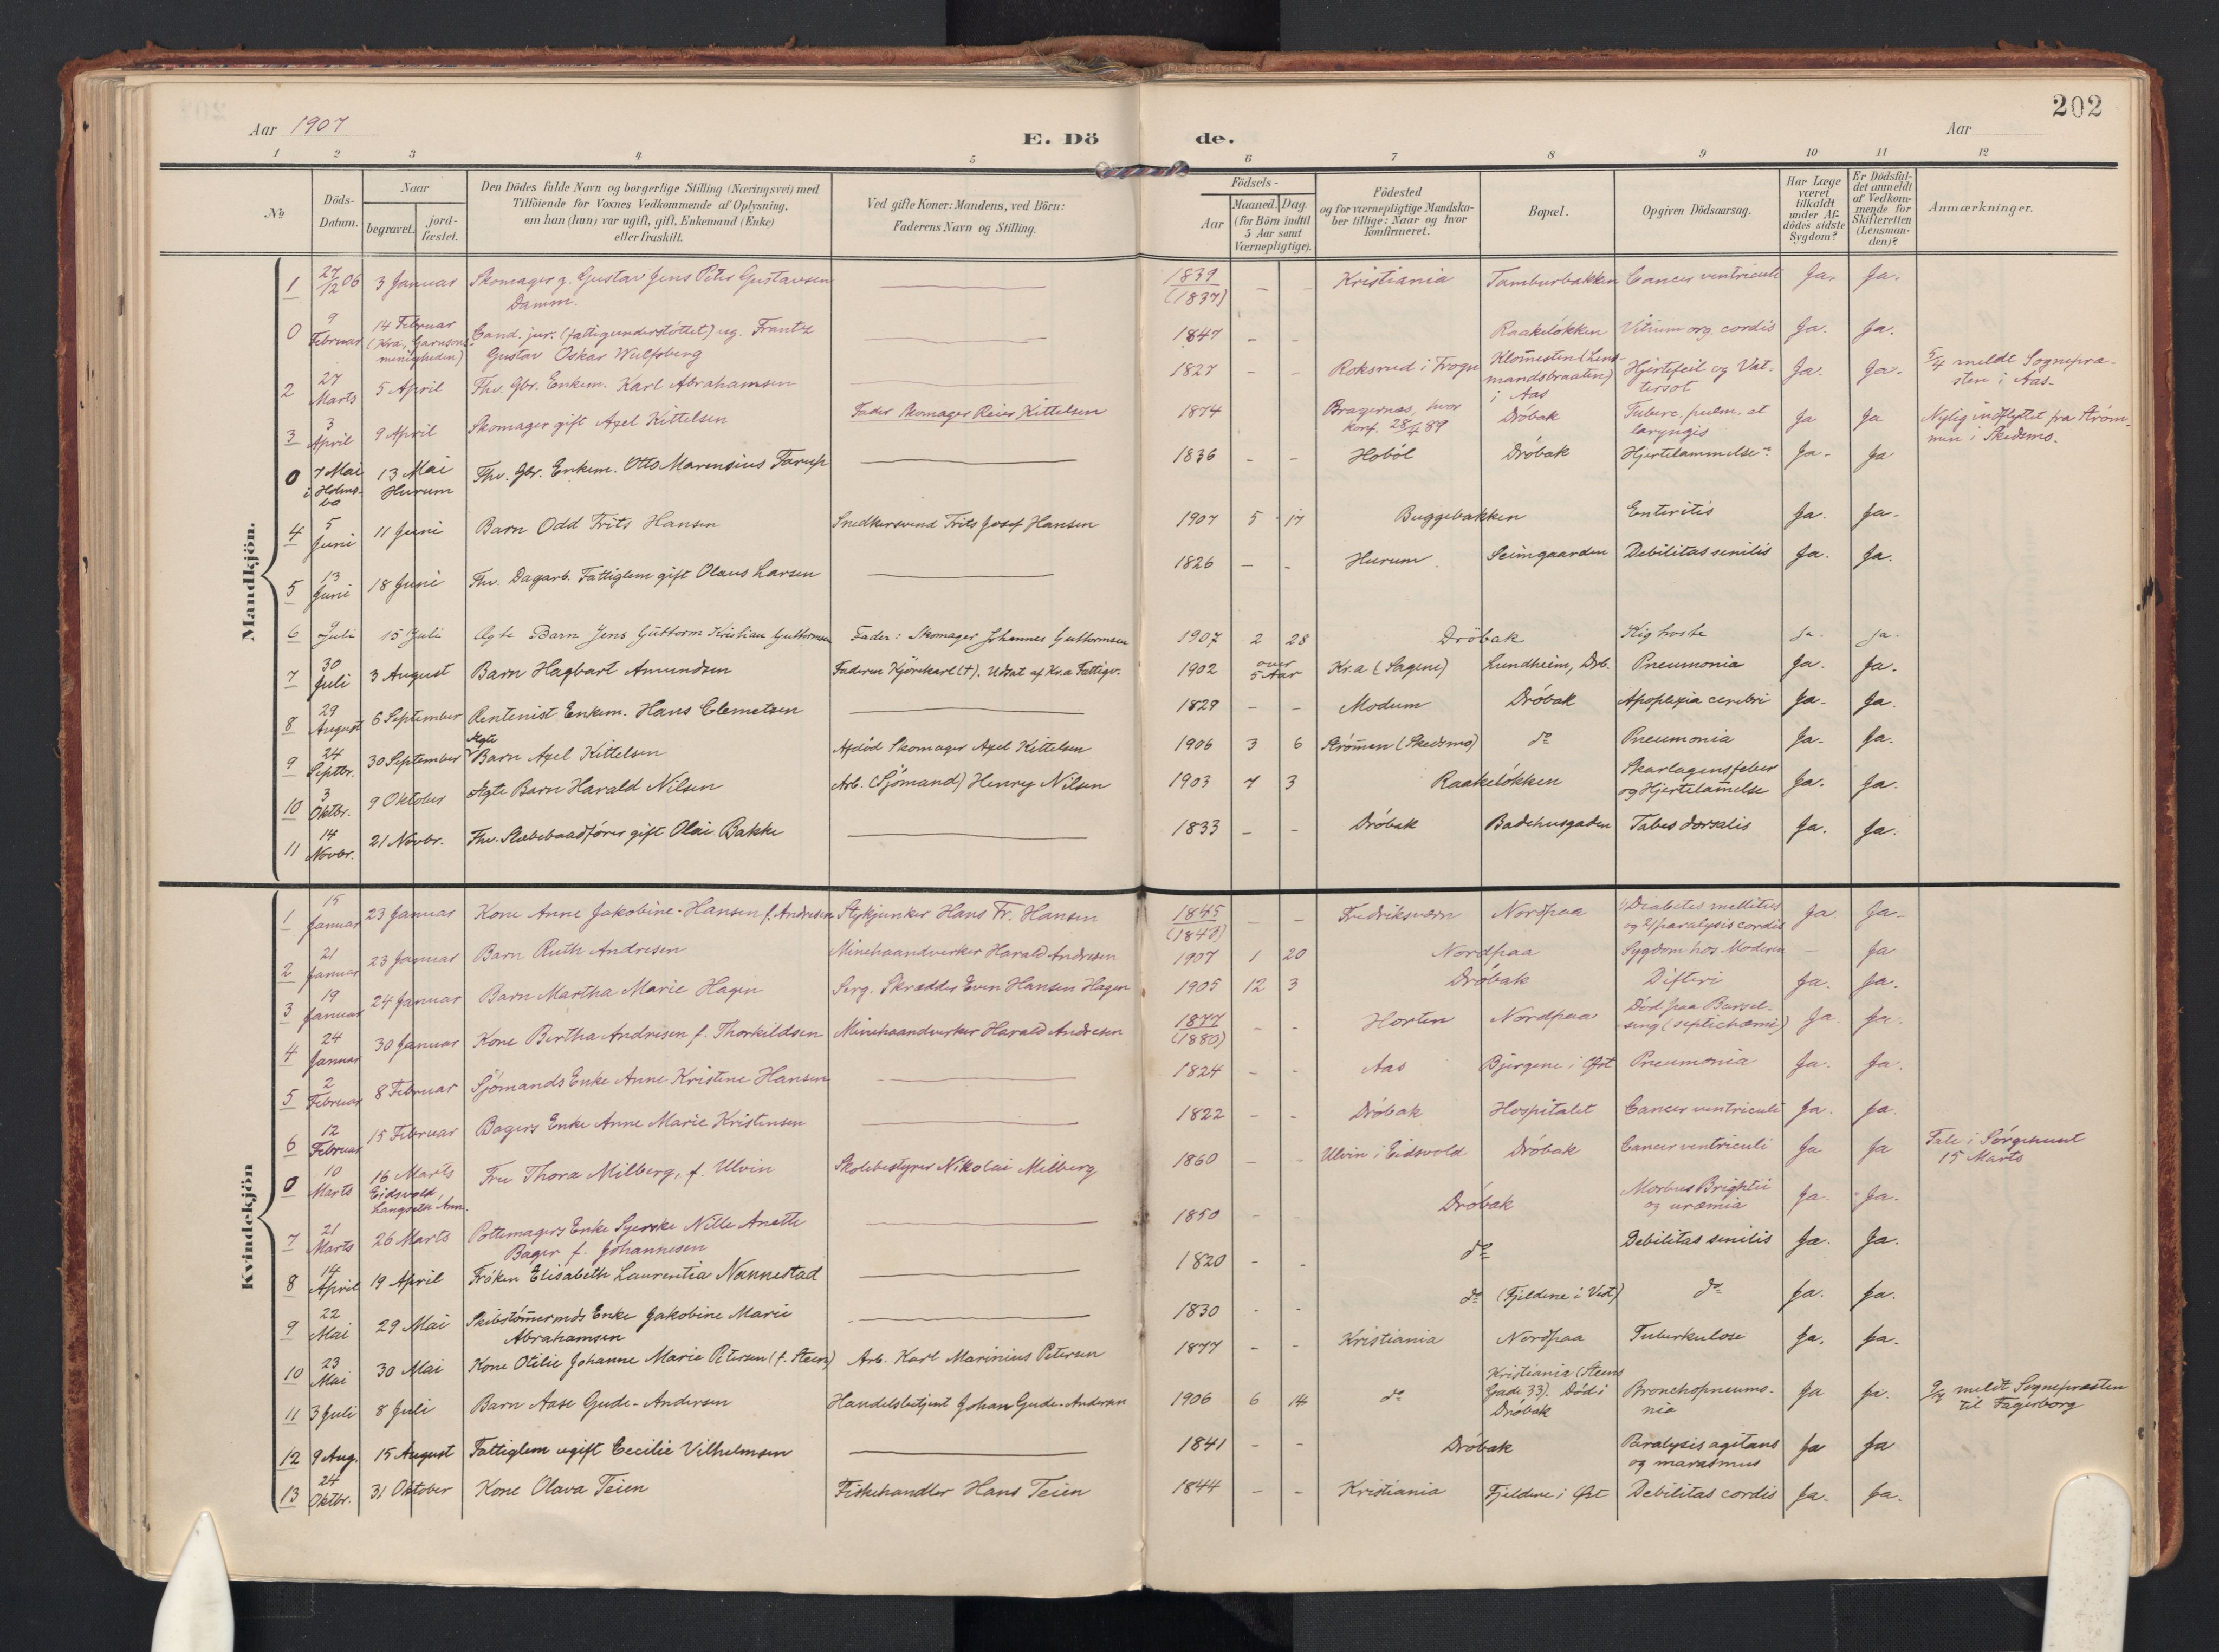 202
Aar 1907
E. Dö de.
Aar
1 2 3 4 5 6 7 8 9 10 11 12
No
Döds-Datum.
Naar
begravet.
jord-fæstet.
Den Dödes fulde Navn og borgerlige Stilling (Næringsvei) med
Tilföiende for Voxnes Vedkommende af Oplysning,
om han (hun) var ugift, gift, Enkemand (Enke)
eller fraskilt.
Ved gifte Koner: Mandens, ved Börn:
Faderens Navn og Stilling.
Födsels-
Aar
Maaned. Dag.
(for Börn indtil
5 Aar samt
Værnepligtige).
Födested
og for værnepligtige Mandska-
ber tillige: Naar og hvor
konfirmeret.
Bopæl.
Opgiven Dödsaarsag.
Har Læge
været
tilkaldt
under Af-
dödes sidste
Sygdom?
Er Dödsfal-
det anmeldt
af Vedkom-
mende for
Skifteretten
(Lensman-
den)?
Anmærkninger.
Mandkjön.
1 27/12 06 3 Januar Skomager g. Gustav Jens Peter Gustavsen Damm. 1839 (1837) - - Kristiania Tamburbakken Cancer ventriculi Ja. Ja.
0 9 Februar 14 Februar (Kra., Garnisons-menigheden) Cand. jur. (fattigunderstöttet) ug. Frantz Gustav Oskar Wulfsberg 1847 - - Raakelökken Vitium org. cordis Ja. Ja.
2 27 Marts 5 April Fhv. Gbr. Enkem. Karl Abrahamsen 1827 - - Roksrud i Frogn Klomesten (Lens-mandsbraaten) i Aas Hjertefeil og Vat-tersot Ja. Ja. 5/4 meldt Sognepræ-sten i Aas.
3 3 April 9 April Skomager gift Axel Kittelsen Fader Skomager Reier Kittelsen 1874 Bragernæs, hvor konf. 28/4 89 Dröbak Tuberc. pulm. et laryngis Ja Ja Nylig indflyttet fra Ström-men i Skedsmo.
0 7 Mai i Holms-bo 13 Mai Hurum Fhv. Gbr. Enkem. Otto Marensius Farup 1836 - - Hoböl Dröbak Hjertelammelse? Ja. Ja
4 5 Juni 11 Juni Barn Odd Frits Hansen Snedkersvend Frits Josef Hansen 1907 5 17 Buggebakken Enteritis Ja. Ja.
5 13 Juni 18 Juni Fhv. Dagarb. Fattiglem gift Olaus Larsen 1826 - - Hurum Seimgaarden Debilitas senilis Ja. Ja.
6 9 Juli 15 Juli Ægte Barn Jens Guttorm Kristian Guttormsen Fader: Skomager Johannes Guttormsen 1907 2 28 Dröbak Kighoste Ja. Ja.
7 30 Juli 3 August Barn Hagbart Amundsen Faderen Kjörekarl (†). Udsat af Kr.a Fattigv. 1902 over 5 Aar Kr.a (Sagene) Lundheim, Drb. Pneumonia Ja. Ja.
8 29 August 6 September Rentenist Enkem. Hans Clemetsen 1829 - - Modum Dröbak Apoplexia cerebri Ja. Ja.
9 24 Septbr. 30 September Ægte Barn Axel Kittelsen Afdöd Skomager Axel Kittelsen 1906 3 6 Strömen (Skedsmo) do Pneumonia Ja. Ja.
10 3 Oktbr. 9 Oktober Ægte Barn Harald Nilsen Arb. (Sjömand) Henry Nilsen 1903 7 3 Raakelökken Skarlagensfeber og Hjertelamelse Ja. Ja.
11 14 Novbr. 21 Novbr. Fhv. Slæbebaadförer gift Olai Bakke 1833 - - Dröbak Badehusgaden Tabes dorsalis Ja. Ja.
Kvindekjön
1 15 Januar 23 Januar Kone Anne Jakobine Hansen f. Andresen Stykjunker Hans Fr. Hansen 1845 (1848) - - Fredriksværn Nordpaa 1) Diabetes mellitus og 2) paralysis cordis Ja. Ja.
2 21 Januar 23 Januar Barn Ruth Andresen Minehaandverker Harald Andresen 1907 1 20 Nordpaa Sygdom hos Moderen - Ja
3 19 Januar 24 Januar Barn Martha Marie Hagen Serg. Skrædder Even Hansen Hagen 1905 12 3 Dröbak Difteri Ja. Ja.
4 24 Januar 30 Januar Kone Bertha Andresen f. Thorkildsen Minehaandverker Harald Andresen 1877 (1880) - - Horten Nordpaa Död paa Barsel-seng (septichæmi) Ja. Ja.
5 2 Februar 8 Februar Sjömands Enke Anne Kristine Hansen 1824 - - Aas Bjergene i Öst Pneumonia Ja. Ja.
6 12 Februar 15 Februar Bagers Enke Anne Marie Kristensen 1822 - - Dröbak Hospitalet Cancer ventriculi Ja. Ja.
0 10 Marts 16 Marts Eidsvold, Langseth Ann. Fru Thora Milberg, f. Ulvin Skolebestyrer Nikolai Milberg 1860 - - Ulvin i Eidsvold Dröbak Cancer ventriculi Ja Ja Tale i Sörgehuset 15 Marts
7 21 Marts 26 Marts Pottemagers Enke Syerske Nille Anette Bager f. Johannesen 1850 - - Dröbak Morbus Brightii og uræmia Ja. Ja.
8 14 April 19 April Fröken Elisabeth Laurentia Nannestad 1820 - - do Debilitas senilis Ja. Ja.
9 22 Mai 29 Mai Skibstömermds Enke Jakobine Marie Abrahamsen 1830 - - do (Fjeldene i Vest) do Ja. Ja.
10 23 Mai 30 Mai Kone Otilie Johanne Marie Petersen (f. Steen) Arb. Karl Marinius Petersen 1877 Kristiania Nordpaa Tuberkulose Ja. Ja.
11 3 Juli 8 Juli Barn Aase Gude-Andersen Handelsbetjent Johan Gude-Andersen 1906 6 14 do Kristiania (Steens Gade 33). Död i Dröbak Bronchopneumo-nia Ja Ja. 9/7 meldt Sognepræsten til Fagerborg
12 9 Aug. 15 August Fattiglem ugift Cecilie Vilhelmsen 1841 - - Dröbak Paralysis agitans og marasmus Ja Ja
13 24 Oktbr. 31 Oktober Kone Olava Teien Fiskehandler Hans Teien 1844 - - Kristiania Fjeldene i Öst Debilitas cordis Ja. Ja.